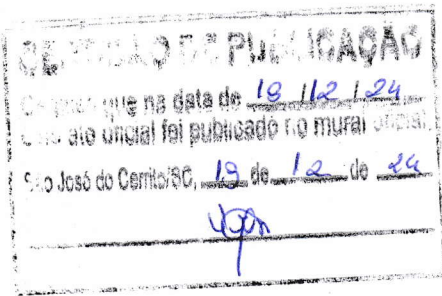 CERTIDÃO DE PUBLICAÇÃO
que na data de 19 / 12 / 24
ato oficial foi publicado no mural oficial
São José do Cerrito/SC, 19 de 12 de 24